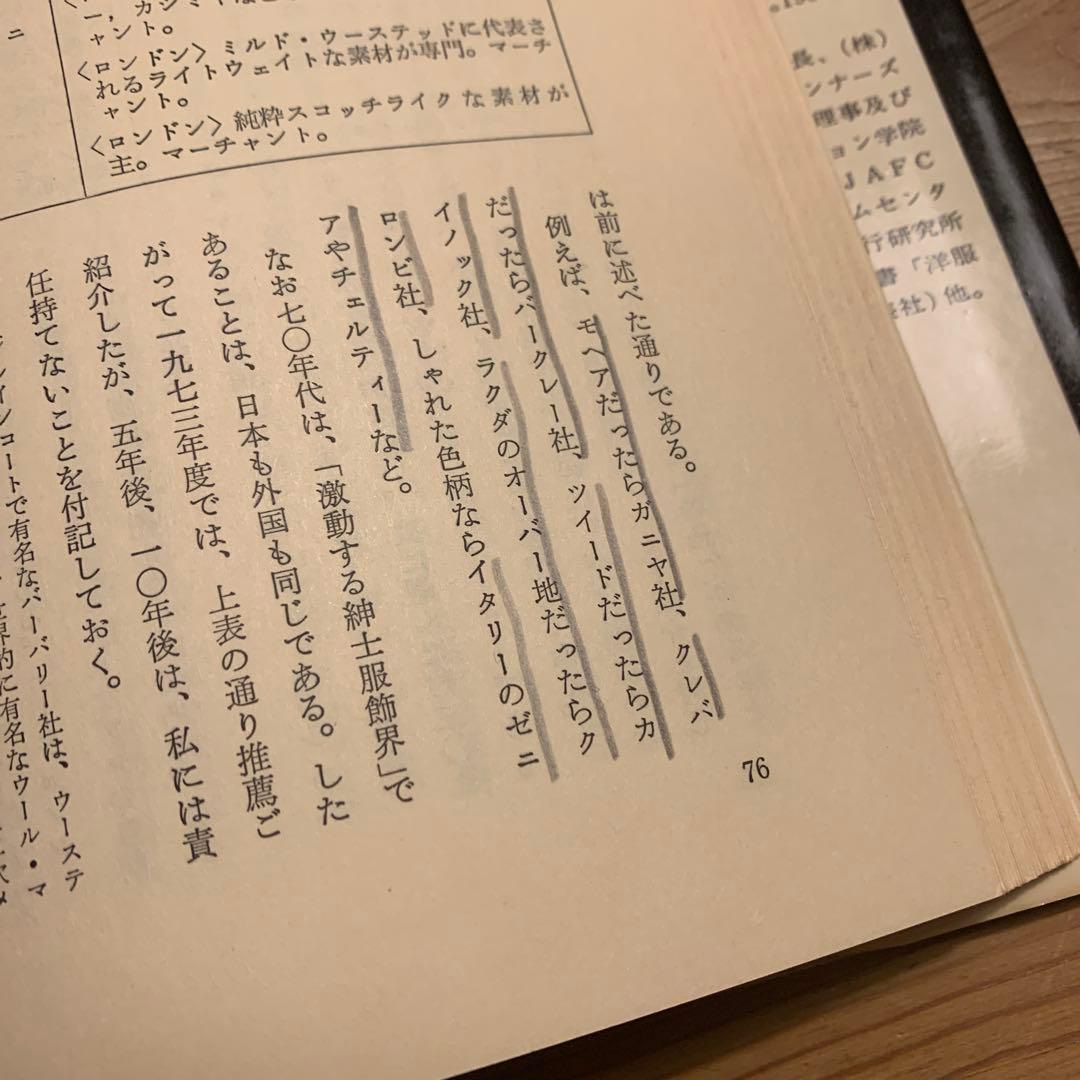 ャント。
〈ロンドン〉ミルド・ウーステッドに代表さ
れるライトウェイトな素材が専門。マーチ
ャント。
〈ロンドン〉純粋スコッチライクな素材が
主。マーチャント。
は前に述べた通りである。
例えば、モヘアだったらガニヤ社、クレバ
だったらバークレー社、ツイードだったらカ
イノック社、ラクダのオーバー地だったらク
ロンビ社、しゃれた色柄ならイタリーのゼニ
アやチェルティーなど。
なお七〇年代は、「激動する紳士服飾界」で
あることは、日本も外国も同じである。した
がって一九七三年度では、上表の通り推薦ご
紹介したが、五年後、一〇年後は、私には責
任持てないことを付記しておく。
インコートで有名なバーバリー社は、ウーステ
界的に有名なウール・マ
76
長、(株)
ンナーズ
理事及び
ョン学院
JAFC
ムセンタ
行研究所
書「洋服
社)他。